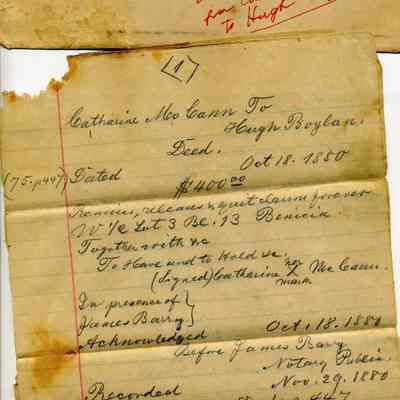 to Hugh
(1)
Catharine McCann To
Hugh Boylan.
Deed.
Oct 18. 1880
(75.p447) Dated
$400.00
Remise, release & quit claim forever
W 1/2 Lot 3 Bl. 13 Benicia
Together with &c
To Have and to Hold &c.
(Signed) Catharine X McCann.
her
mark
In presence of
James Barry
Acknowledged Oct. 18. 1880
Before James Barry
Notary Public.
Recorded Nov. 29. 1880
447